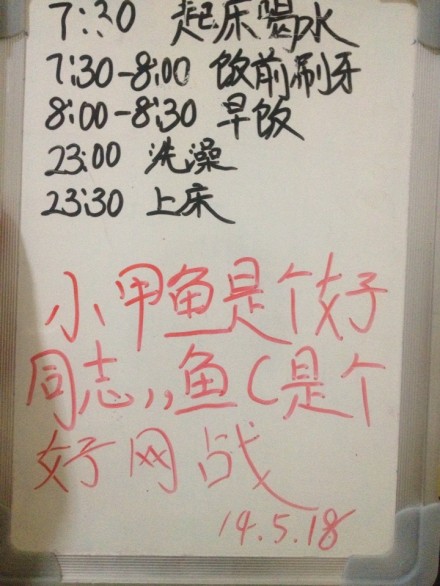 7:30 起床喝水
7:30-8:00 饭前刷牙
8:00-8:30 早饭
23:00 洗澡
23:30 上床
小甲鱼是个好
同志,,鱼C是个
好网战
14.5.18